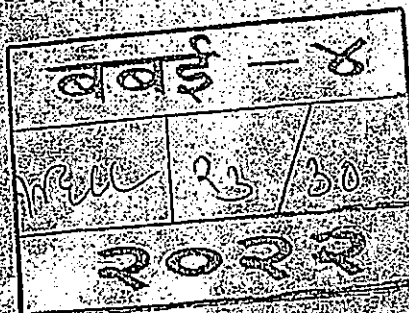 बबई - ४
२३/३०
२०२२